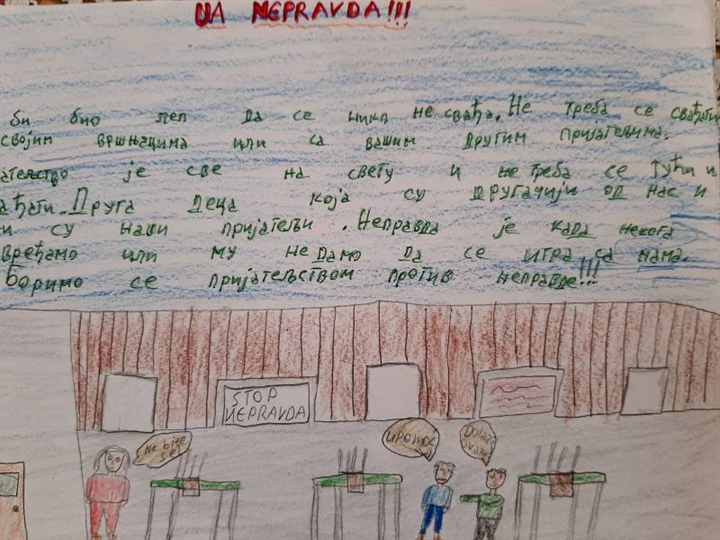 NEPRAVDA!!!
би био леп да се нико не свађа. Не треба се свађати
својим вршњацима или са вашим другим пријатељима.
атељство је све на свету и не треба се тући и
ађати. Друга деца која су другачији од нас и
и су наши пријатељи. Неправда је када некога
вређамо или му не дамо да се игра са нама.
Боримо се пријатељством против неправде!!!
STOP
NEPRAVDA
Ne bijte
se!
upomoć